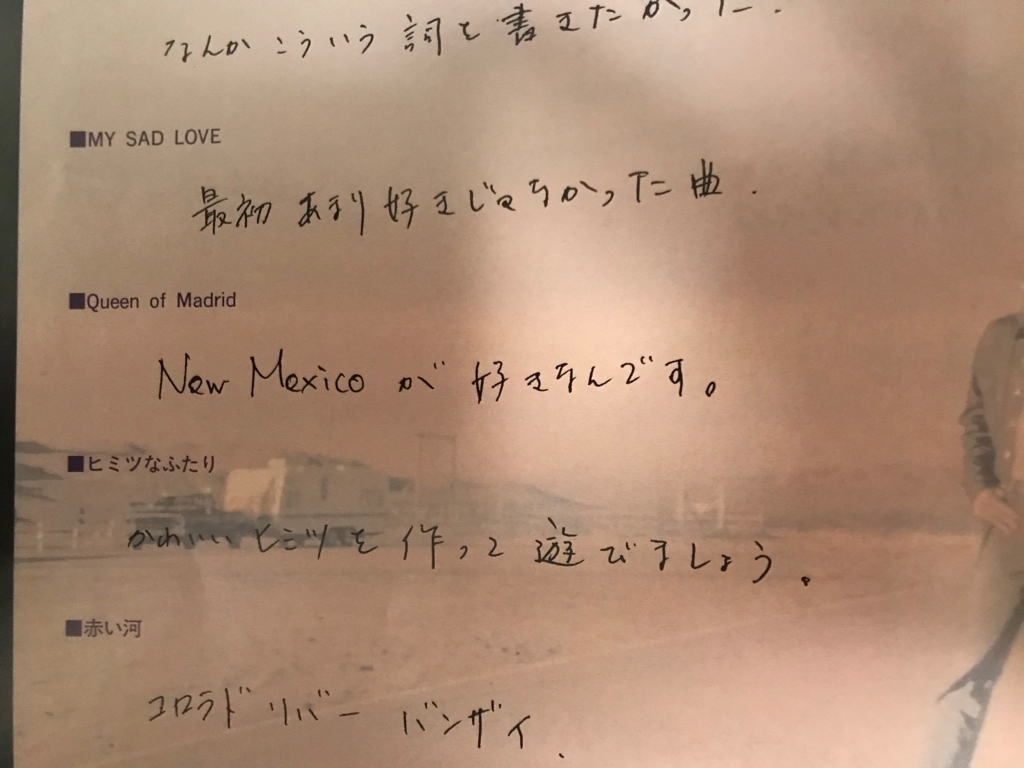 なんかこういう詞を書きたかった.
■MY SAD LOVE
最初あまり好きじゃなかった曲.
■Queen of Madrid
New Mexicoが好きなんです。
■ヒミツなふたり
かわいいヒミツを作って遊びましょう。
■赤い河
コロラドリバー バンザイ.